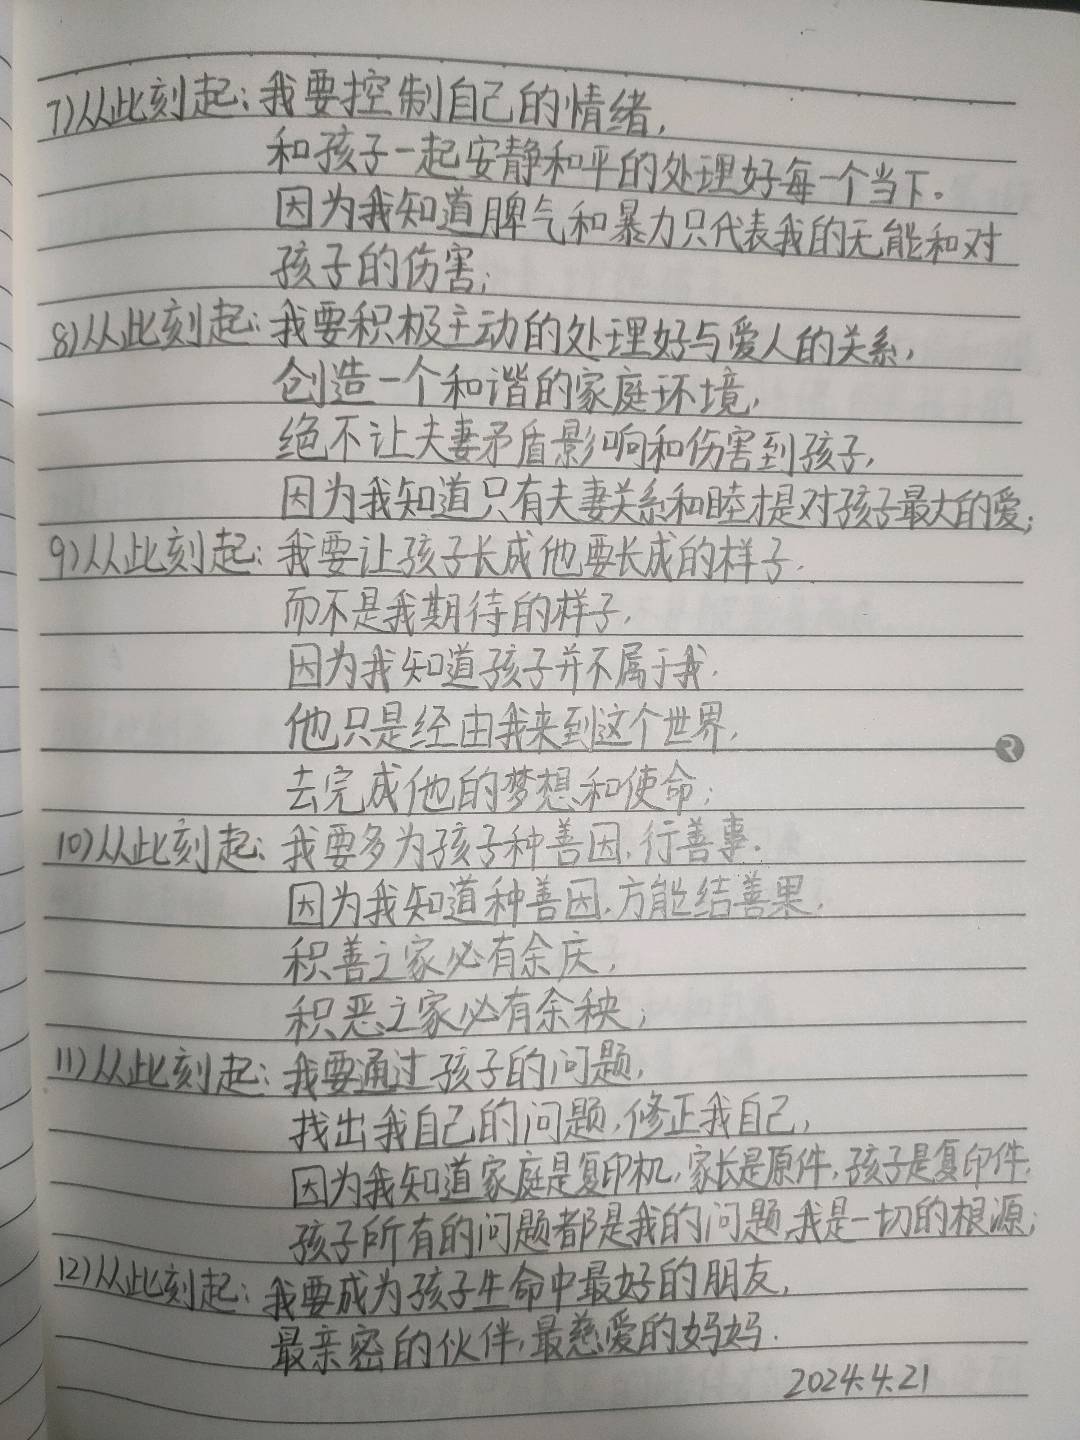 7)从此刻起:我要控制自己的情绪,
和孩子一起安静和平的处理好每一个当下。
因为我知道脾气和暴力只代表我的无能和对
孩子的伤害;
8)从此刻起:我要积极主动的处理好与爱人的关系,
创造一个和谐的家庭环境,
绝不让夫妻矛盾影响和伤害到孩子,
因为我知道只有夫妻关系和睦才是对孩子最大的爱;
9)从此刻起:我要让孩子长成他要长成的样子.
而不是我期待的样子,
因为我知道孩子并不属于我.
他只是经由我来到这个世界,
去完成他的梦想和使命;
10)从此刻起:我要多为孩子种善因,行善事.
因为我知道种善因,方能结善果,
积善之家必有余庆,
积恶之家必有余秧;
11)从此刻起:我要通过孩子的问题,
找出我自己的问题,修正我自己,
因为我知道家庭是复印机,家长是原件,孩子是复印件,
孩子所有的问题都是我的问题,我是一切的根源;
12)从此刻起:我要成为孩子生命中最好的朋友,
最亲密的伙伴,最慈爱的妈妈.
2024.4.21